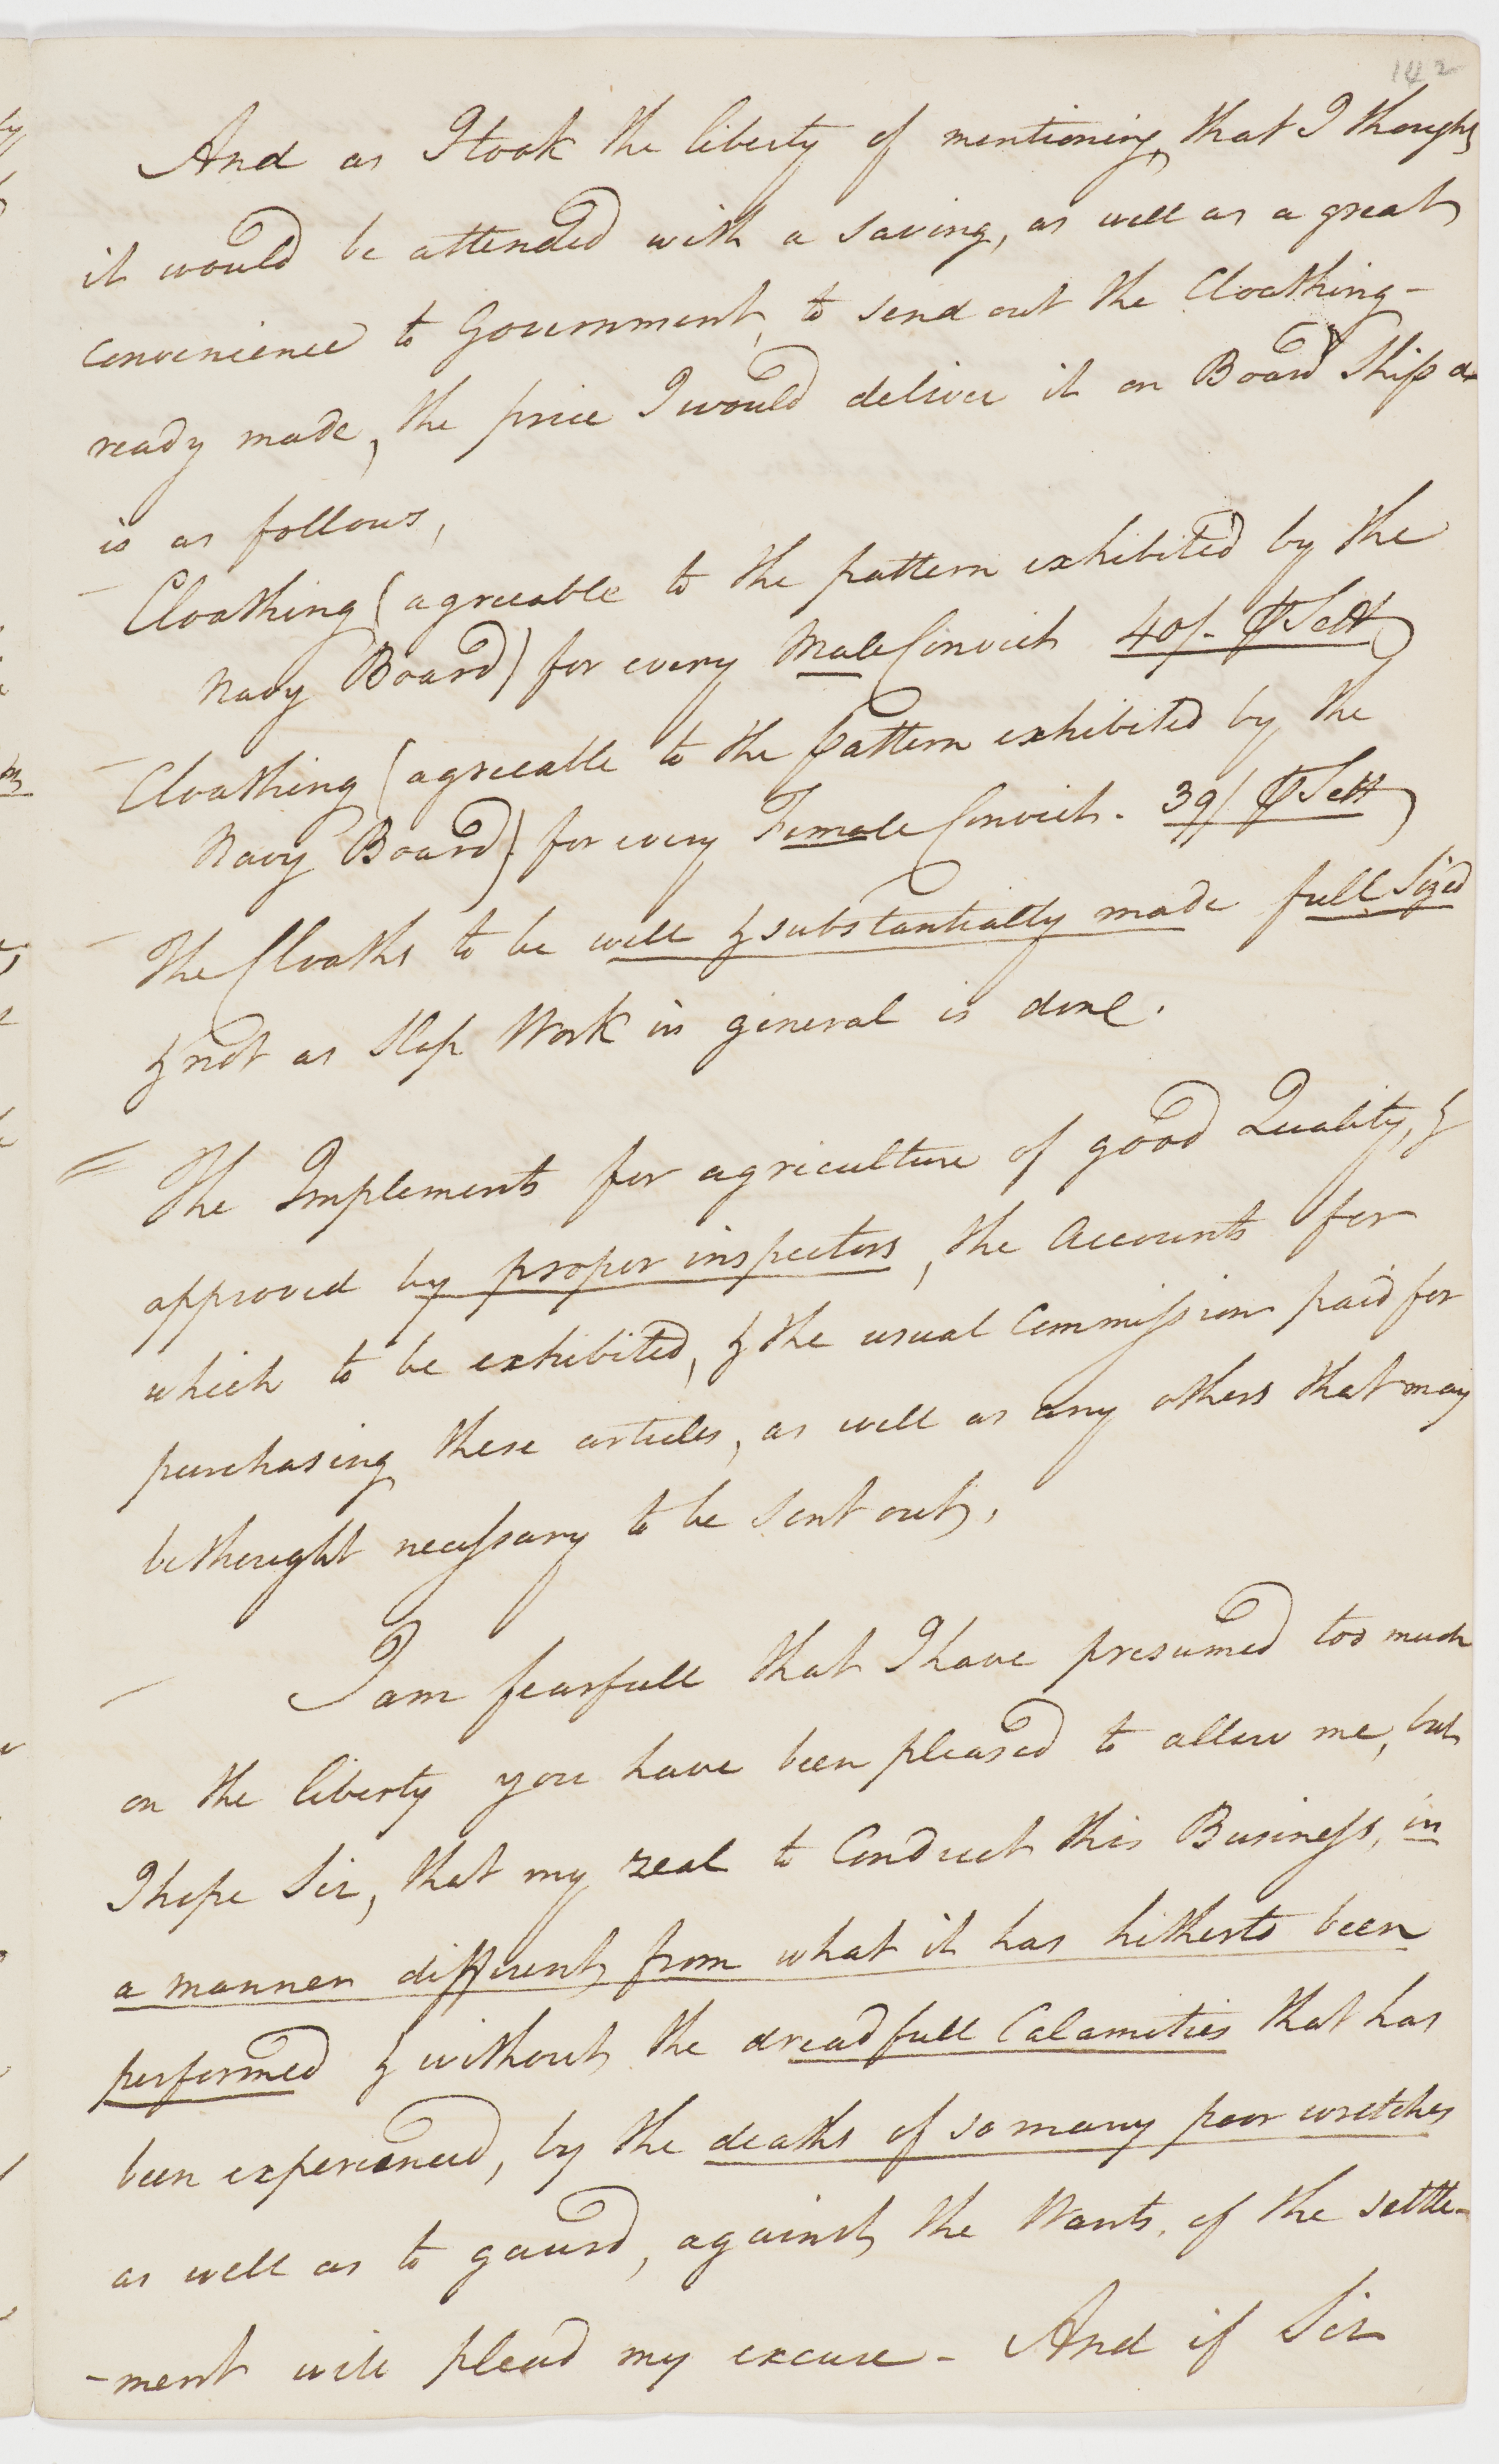 142
And as I took the liberty of mentioning, that I thought
it would be attended with a saving, as well as a great
convenience to Government, to send out the Cloathing -
ready made, the price I would deliver it on Board Ship
is as follows,
- Cloathing (agreeable to the pattern exhibited by the
Navy Board) for every Male Convict 40/- ⅌ Sett
- Cloathing (agreeable to the pattern exhibited by the
Navy Board) for every Female Convict. 39/ ⅌ Sett
- The Cloaths to be well & substantially made full sized
& not as Slop Work in general is done.
= The Implements for agriculture of good Quality, &
approved by proper inspectors, the Accounts for
which to be exhibited, & the usual Commission paid for
purchasing these articles, as well as any others that may
be thought necessary to be sent out,
- I am fearfull that I have presumed too much
on the liberty you have been pleased to allow me, but
I hope Sir, that my zeal to Conduct this Business, in
a manner different from what it has hitherto been
performed & without the dreadfull Calamities that has
been experienced, by the deaths of so many poor wretches
as well as to gaurd, against the Wants, of the settle-
-ment will plead my excuse - And if Sir